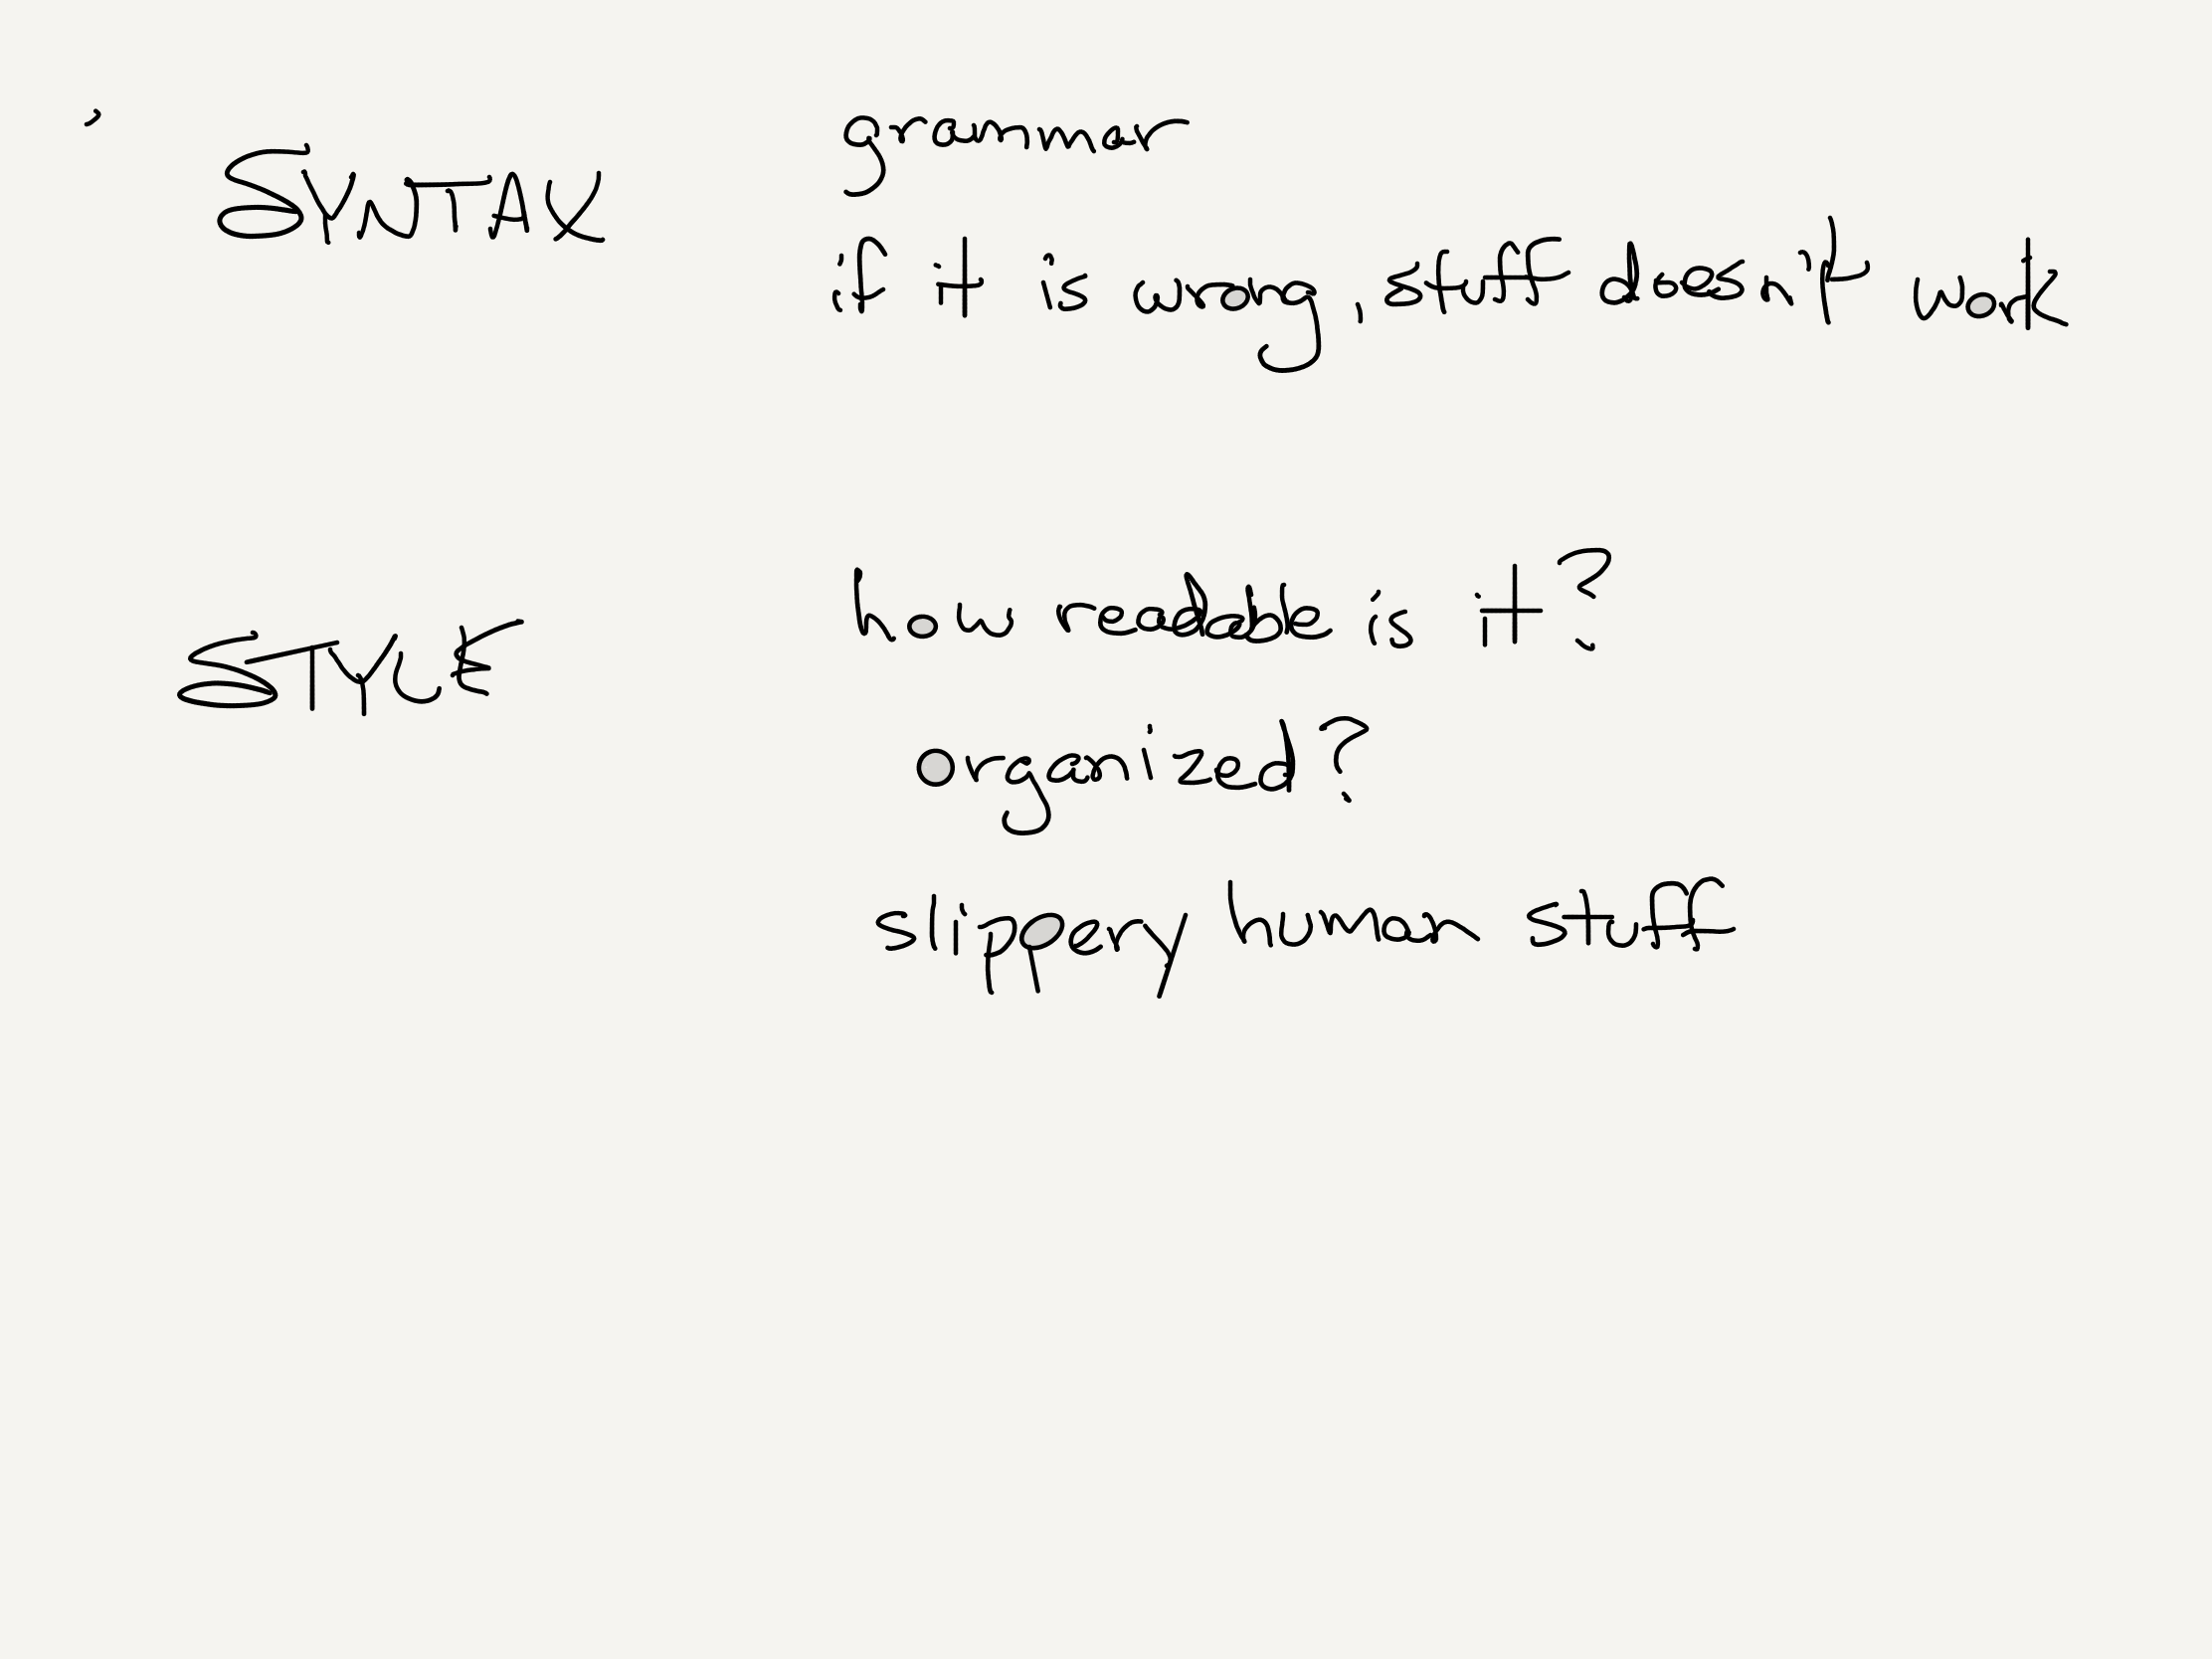 SYNTAX
grammer
if it is wrong, stuff doesn't work
STYLE
how readable is it?
organized?
slippery human stuff